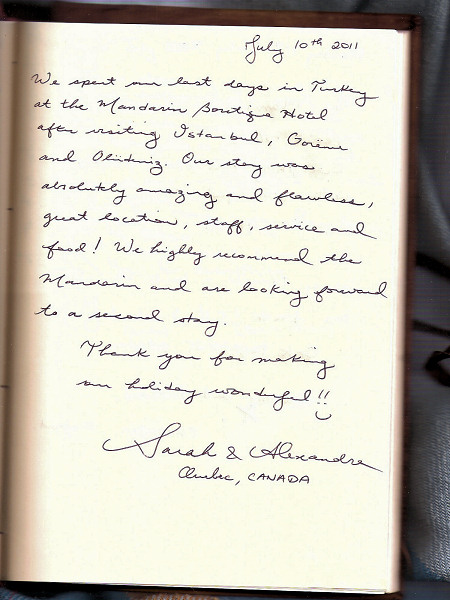 July 10th 2011
We spent our last days in Turkey
at the Mandarin Boutique Hotel
after visiting Istanbul, Göreme
and Olüdiniz. Our stay was
absolutely amazing and flawless,
great location, staff, service and
food! We highly recommend the
Mandarin and are looking forward
to a second stay.
Thank you for making
our holiday wonderful!!
Sarah & Alexandre
Quebec, CANADA